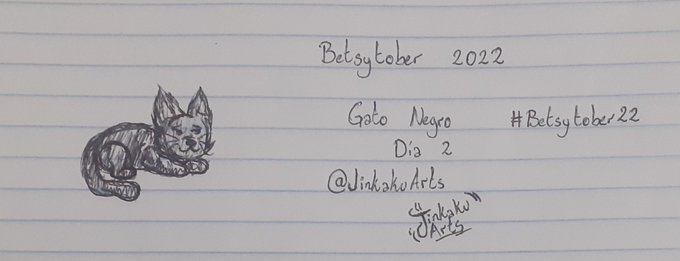 Betsytober 2022
Gato Negro #Betsytober22
Día 2
@JinkakuArts
Jinkaku
Arts